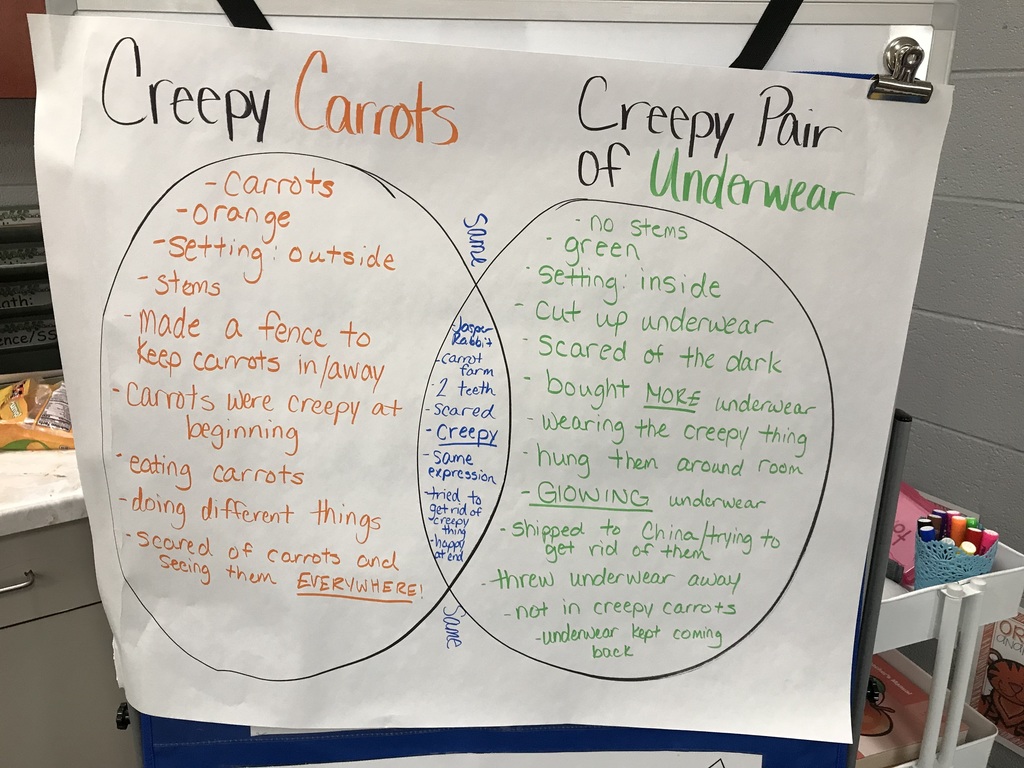 Creepy Carrots
- Carrots
- orange
- setting: outside
- stems
- made a fence to
keep carrots in/away
- Carrots were creepy at
beginning
- eating carrots
- doing different things
- scared of carrots and
seeing them EVERYWHERE!
same
- Jasper
Rabbit
- carrot
farm
- 2 teeth
- scared
- Creepy
- same
expression
- tried to
get rid of
creepy
thing
- happy
at end
same
Creepy Pair
of Underwear
- no stems
- green
- setting: inside
- cut up underwear
- scared of the dark
- bought MORE underwear
- wearing the creepy thing
- hung them around room
- GlOWING underwear
- shipped to China/trying to
get rid of them
- threw underwear away
- not in creepy carrots
- underwear kept coming
back
nth:
ence/SS